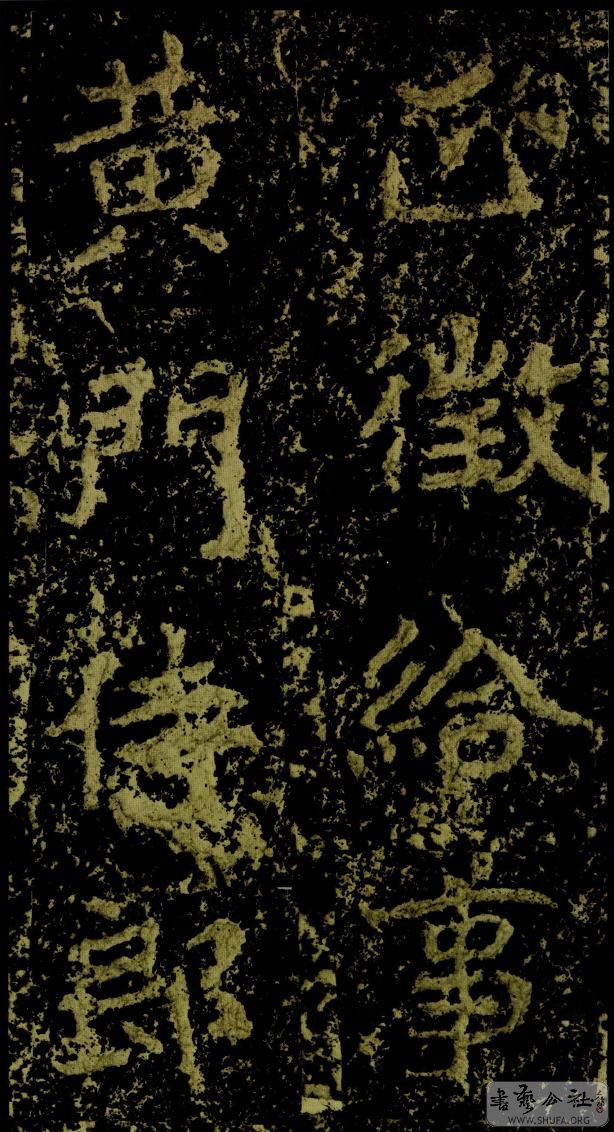 徵給事
黄門侍郎
書藝公社
WWW.SHUFA.ORG